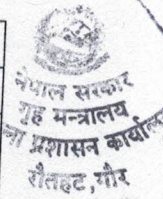 नेपाल सरकार
गृह मन्त्रालय
ला प्रशासन कार्याल
रौतहट, गौर